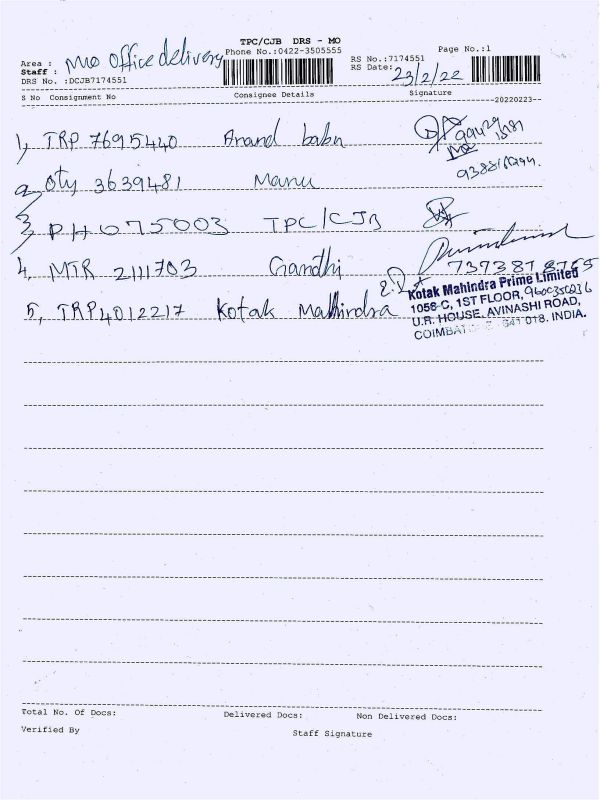 TPC/CJB DRS - MO
Phone No.:0422-3505555 Page No.:1
Area : MO Office delivery RS No.:7174551
Staff : RS Date: 23/2/22
DRS No. :DCJB7174551
S No Consignment No Consignee Details Signature
--20220223--
1, TRP 7695440 Anand babu
2, Oty 3639481 Manu
3, PH 075003 TPC/CJB
4, MTR 2111703 Gandhi 7373878765
5, TRP4012217 Kotak Mahindra
Kotak Mahindra Prime Limited
1056-C, 1ST FLOOR,
U.R. HOUSE, AVINASHI ROAD,
COIMBATORE 641 018. INDIA.
Total No. Of Docs: Delivered Docs: Non Delivered Docs:
Verified By Staff Signature